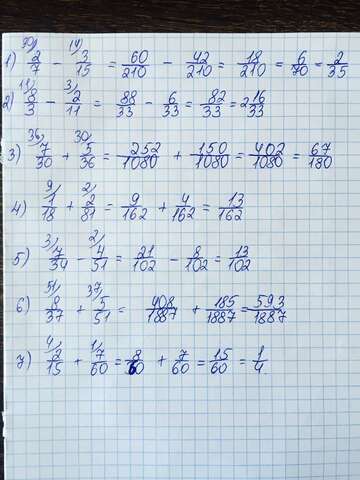 1) 30/ 2/7 - 14/ 3/15 = 60/210 - 42/210 = 18/210 = 6/70 = 2/35
2) 11/ 8/3 - 3/ 2/11 = 88/33 - 6/33 = 82/33 = 2 16/33
3) 36/ 7/30 + 30/ 5/36 = 252/1080 + 150/1080 = 402/1080 = 67/180
4) 9/ 1/18 + 2/ 2/81 = 9/162 + 4/162 = 13/162
5) 3/ 7/34 - 2/ 4/51 = 21/102 - 8/102 = 13/102
6) 51/ 8/37 + 37/ 5/51 = 408/1887 + 185/1887 = 593/1887
7) 4/ 2/15 + 1/ 7/60 = 8/60 + 7/60 = 15/60 = 1/4